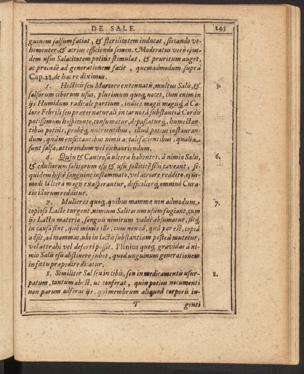 DE SALE. 243
guinem salsum faciat, & sterilitatem inducat, siccando ve-
hementer, & acrius efficiendo semen. Moderatus verò eius-
dem usus Salacitatem potius stimulat, & pruritum auget,
ac proinde ad generationem facit, quemadmodum suprà
Cap.22. de hac re diximus.
5. Hecticis seu Marcore extenuatis, multus Salis, &
salsorum ciborum usus, plurimum quoq; nocet, cum enim in
ijs Humidum radicale partium, indies magis magisq; à Ca-
lore Febrili seu præternaturali, in carneâ substantiâ Cordis
potissimum consistente, consumatur, depascaturq;, humectan-
tibus potius, probeq; nutrientibus, illud potius instauran-
dum, quàm exsiccantibus nimis
sunt salsa, atterendum vel exhauriendum.
6. Quin & Cancrosa ulcera habentes, à nimio Salis,
& eduliorum salitorum esu & usu sollicitè sibi caveant, si-
quidem his sanguine inflammato, vel acriore reddito, eius-
modi Ulcera magis exasperantur, difficilioremq; omnino Cura-
tionem redditur.
7. Mulieres quoq; quibus mammæ non admodum,
copiosè Lacte turgent, nimium Salitorum usum fugiant, cum
ijs Lactis materia, sanguis nimirum valdè absumatur, sicq;
in causa sint, quò minùs ille, cum necesse, quâ par est, copiâ
adsit, ad mammas ubi in Lactis substantiam posteà mutetur,
vel attrahi vel deferri possit. Plinius quoq; gravidas à ni-
mio Salis esu abstinere jubet, quod unguinum generationem
in fœtu præpedire dicatur.
8. Similiter Sal seu in cibis, seu in medicamentis usur-
patum, tantum abest, ut conferat, quin potius nocumenti
non parum afferat ijs, qui membrum aliquod corporis in-
T genti
5.
6.
7.
8.